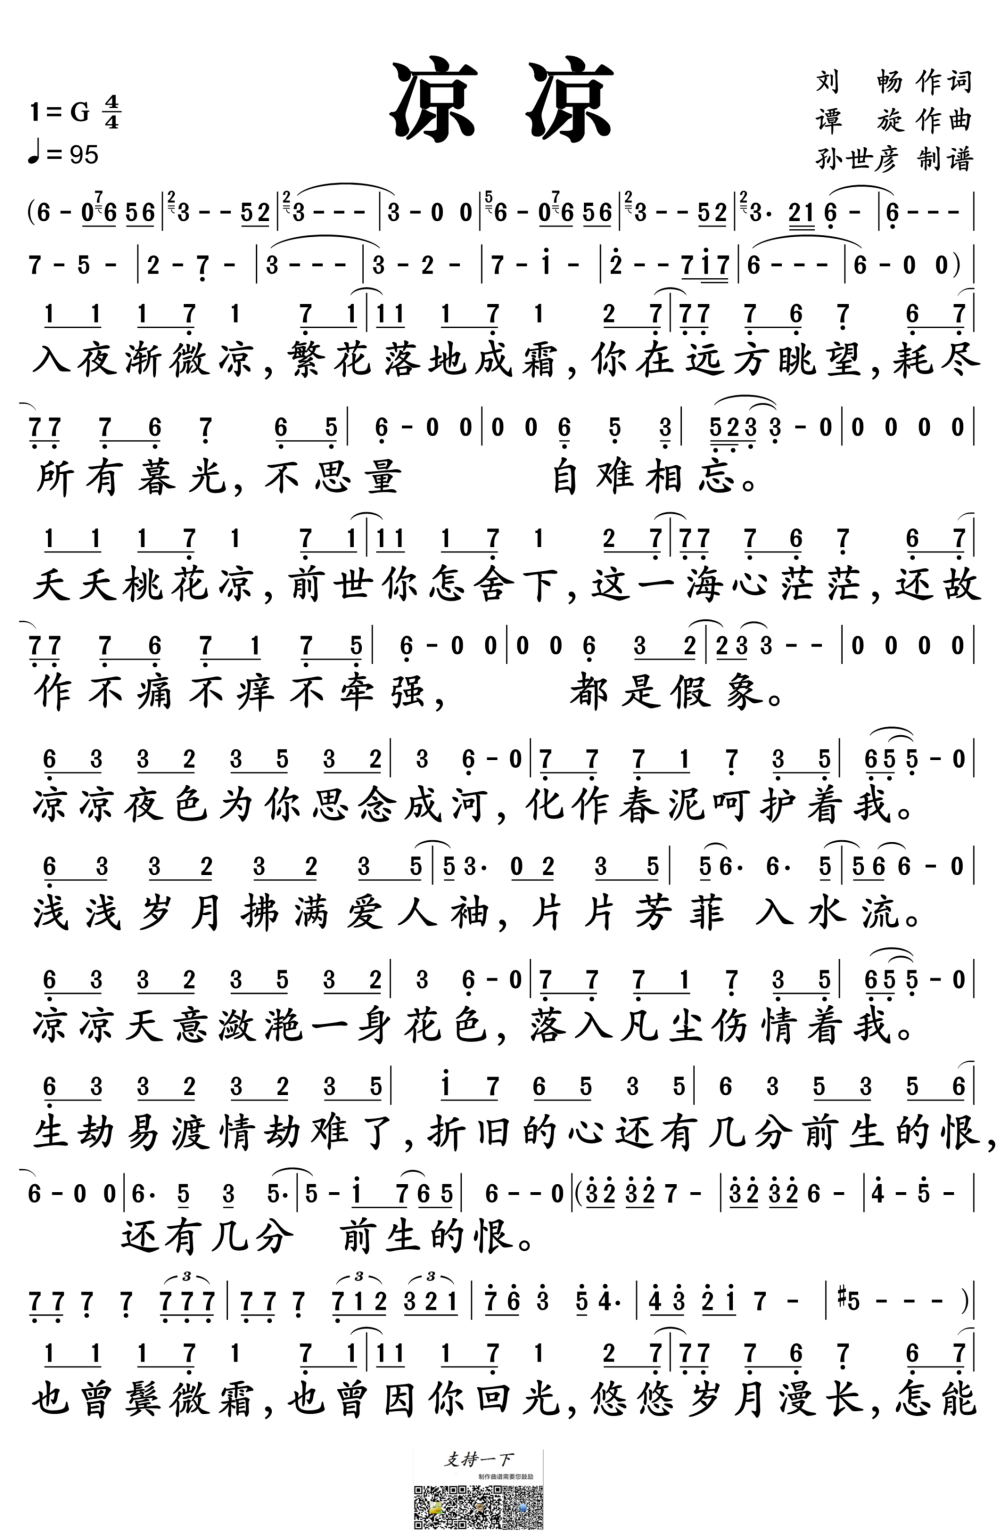 凉 凉
1=G 4/4
♩=95
刘 畅 作词
谭 旋 作曲
孙世彦 制谱
(6 - 0 7 6 5 6 | 2 3 - - 5 2 | 2 3 - - - | 3 - 0 0 | 5 6 - 0 7 6 5 6 | 2 3 - - 5 2 | 2 3· 2 1 6 - | 6 - - - |
7 - 5 - | 2 - 7 - | 3 - - - | 3 - 2 - | 7 - 1 - | 2 - - 7 1 7 | 6 - - - | 6 - 0 0 )
1 1 1 7 1 7 1 | 1 1 1 7 1 2 7 | 7 7 7 6 7 6 7 |
入夜渐微凉,繁花落地成霜,你在远方眺望,耗尽
7 7 7 6 7 6 5 | 6 - 0 0 | 0 0 6 5 3 | 5 2 3 3 - 0 | 0 0 0 0 |
所有暮光,不思量 自难相忘。
1 1 1 7 1 7 1 | 1 1 1 7 1 2 7 | 7 7 7 6 7 6 7 |
夭夭桃花凉,前世你怎舍下,这一海心茫茫,还故
7 7 7 6 7 1 7 5 | 6 - 0 0 | 0 0 6 3 2 | 2 3 3 - - | 0 0 0 0 |
作不痛不痒不牵强, 都是假象。
6 3 3 2 3 5 3 2 | 3 3 6 - 0 | 7 7 7 1 7 3 5 | 6 5 5 - 0 |
凉凉夜色为你思念成河,化作春泥呵护着我。
6 3 3 2 3 2 3 5 | 5 3· 0 2 3 5 | 5 6· 6· 5 | 5 6 6 - 0 |
浅浅岁月拂满爱人袖,片片芳菲 入水流。
6 3 3 2 3 5 3 2 | 3 6 - 0 | 7 7 7 1 7 3 5 | 6 5 5 - 0 |
凉凉天意潋滟一身花色,落入凡尘伤情着我。
6 3 3 2 3 2 3 5 | 1 7 6 5 3 5 | 6 3 5 3 5 6 |
生劫易渡情劫难了,折旧的心还有几分前生的恨,
6 - 0 0 | 6· 5 3 5· | 5 - 1 7 6 5 | 6 - - 0 | (3 2 3 2 7 - | 3 2 3 2 6 - | 4 - 5 - |
还有几分 前生的恨。
7 7 7 7 7 7 7 | 7 7 7 7 1 2 3 2 1 | 7 6 3 5 4· | 4 3 2 1 7 - | #5 - - - )
1 1 1 7 1 7 1 | 1 1 1 7 1 2 7 | 7 7 7 6 7 6 7 |
也曾鬓微霜,也曾因你回光,悠悠岁月漫长,怎能
支持一下
制作曲谱需要您鼓励